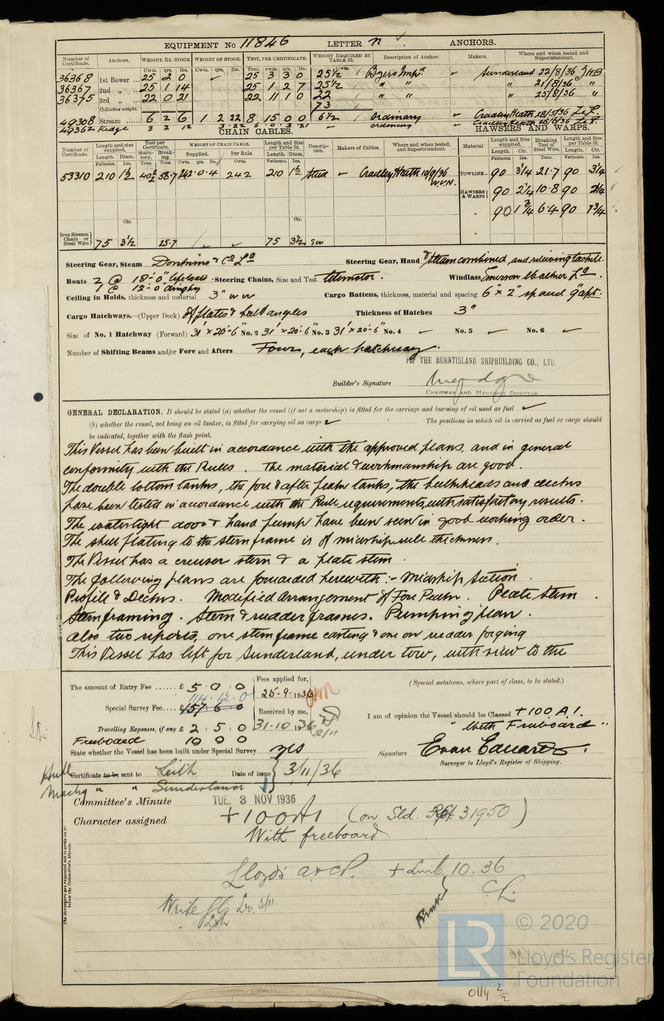 EQUIPMENT No 11846 LETTER n ANCHORS.
Number of Certificate. Anchors. WEIGHT, EX. STOCK. WEIGHT OF STOCK. TEST, PER CERTIFICATE. WEIGHT REQUIRED BY TABLE 31. Description of Anchor. Makers. Where and when tested and Superintendent.
36368 1st Bower 25 2 0 25 3 3 0 25½ Sunderland 22/8/36
36367 2nd " 25 1 14 25 1 2 7 25½ " " " 21/8/36 "
36375 3rd " 22 0 21 22 11 1 0 22 " " " 25/8/36 "
Collective weight 73
49308 Stream 6 2 6 1 2 22 8 15 0 0 6½ ordinary Cradley Heath
49362 Kedge 3 2 12 ordinary
CHAIN CABLES. HAWSERS AND WARPS.
Number of Certificate. Length and size supplied. Test per Certificate. WEIGHT OF CHAIN CABLE. Length and size per Table 31. Description. Makers of Cables. Where and when tested, and Superintendent. Material Length and size supplied. Breaking Test of Steel Wire. Length and size per Table 31.
53310 210 1½ 242.0.4 242 210 1½ Stud Cradley Heath W.V.N.
TOWLINE 90 3¼ 21.7 90 3¼
HAWSERS & WARPS 90 2¼ 10.8 90 2¼
90 1¾ 6.4 90 1¾
Iron Stream Chain or Steel Wire 75 3½ 25.7 75 3½
Steering Gear, Steam Donkins & Co Ld Steering Gear, Hand Steam combined, and relieving tackle
Boats 2 @ 18'-0" lifeboats Steering Chains, Size and Test telemotor. Windlass Emerson Walker Ld
1 @ 12'-0 dinghy
Ceiling in Holds, thickness and material 3" w w Cargo Battens, thickness, material and spacing 6" x 2" spaced 9" apt.
Cargo Hatchways.—(Upper Deck) Of plates & bulb angles Thickness of Hatches 3"
Size of No. 1 Hatchway (Forward) 31' x 20'-6" No. 2 31' x 20'-6" No. 3 31' x 20'-6" No. 4 — No. 5 — No. 6 —
Number of Shifting Beams and/or Fore and Afters Four, each hatchway.
For THE BURNTISLAND SHIPBUILDING CO., LTD.
Builder's Signature
CHAIRMAN AND MANAGING DIRECTOR
GENERAL DECLARATION. It should be stated (a) whether the vessel (if not a motorship) is fitted for the carriage and burning of oil used as fuel ✓
(b) whether the vessel, not being an oil tanker, is fitted for carrying oil as cargo ✓ The positions in which oil is carried as fuel or cargo should
be indicated, together with the flash point.
This Vessel has been built in accordance with the approved plans, and in general
conformity with the Rules. The material & workmanship are good.
The double bottom tanks, the fore & after peak tanks, the bulkheads and decks
have been tested in accordance with the Rule requirements, with satisfactory results.
The watertight doors & hand pump have been seen in good working order.
The shell plating to the stern frame is of midship rule thickness.
The Vessel has a cruiser stern & a plate stem.
The following plans are forwarded herewith :- Midship Section.
Profile & Decks. Modified arrangement of Fore Peak. Plate Stem
Sternframing. Stern & rudder frames. Pumping plan.
Also two reports, one stern frame casting & one on rudder forging
This Vessel has left for Sunderland, under tow, with view to the
The amount of Entry Fee £ 5 0 0 Fees applied for, 25-9-1936
114.12.0
Special Survey Fee £ 157 6 0 Received by me,
Travelling Expenses, if any £ 2 5 0 31.10.36
Freeboard 10 0 0
State whether the Vessel has been built under Special Survey yes
(Special notations, where part of class, to be stated.)
I am of opinion the Vessel should be Classed +100 A1.
"With Freeboard"
Signature Evan Edwards.
Surveyor to Lloyd's Register of Shipping.
Hull Certificate to be sent to Leith Date of issue 3/11/36
Machy " " Sunderland
Committee's Minute TUE. 3 NOV 1936
Character assigned +100A1 (on Sld. Rpt 31950)
With freeboard
Lloyd's A & CP. + LMC 10.36
CL.
Write 3/11
© 2020
LR Lloyd's Register Foundation
0114 2/2